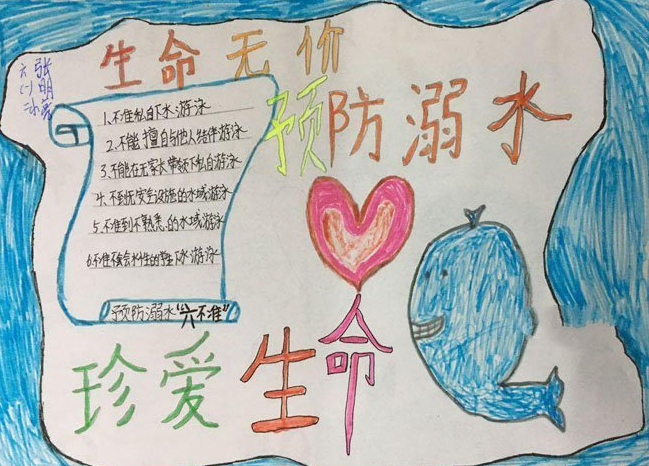 生命无价
预防溺水
张明
六(一)
1.不准私自下水游泳
2.不能擅自与他人结伴游泳
3.不能在无家长带领下私自游泳
4.不到无安全设施的水域游泳
5.不准到不熟悉的水域游泳
6.不准不会水性的学生下水游泳
预防溺水“六不准”
珍爱生命